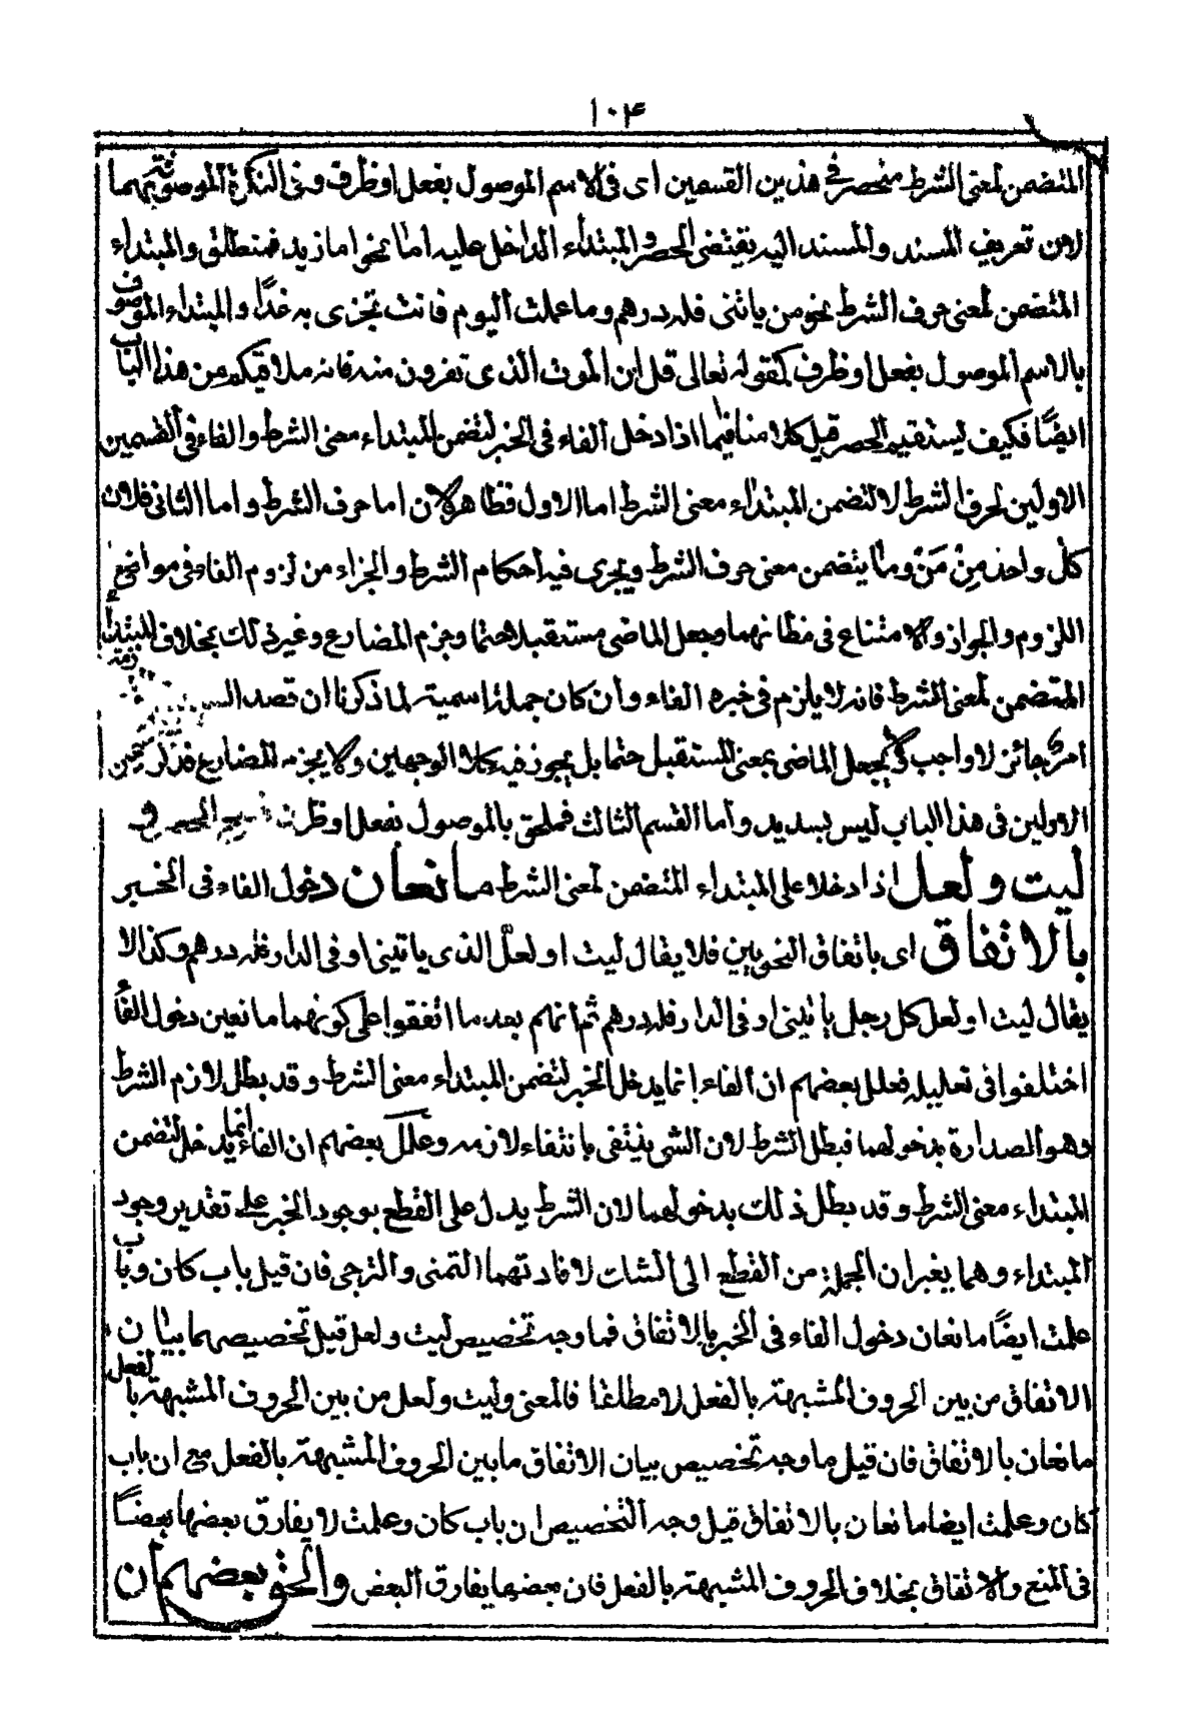 ١٠٤
المتضمن لمعنى الشرط منحصر في هذين القسمين اى فى الاسم الموصول بفعل او ظرف وفى النكرة الموصوفة بهما
لان تعريف المسند والمسند اليه يقتضى الحصر والمبتداء الداخل عليه اما نحو اما زيد فمنطلق والمبتداء
المتضمن لمعنى حرف الشرط نحو من ياتنى فله درهم وما عملت اليوم فانت تجزى به غدًا والمبتداء الموصوف
بالاسم الموصول بفعل او ظرف كقوله تعالى قل ان الموت الذى تفرون منه فانه ملاقيكم من هذا الباب
ايضًا فكيف يستقيم الحصر قيل كلامنا فيما اذا دخل الفاء فى الخبر لتضمن المبتداء معنى الشرط والفاء فى القسمين
الاولين لحرف الشرط لا لتضمن المبتداء معنى الشرط اما الاول فظاهر لان اما حرف الشرط واما الثانى فلان
كل واحد مِنْ مَنْ وما يتضمن معنى حرف الشرط ويجرى فيه احكام الشرط والجزاء من لزوم الفاء فى مواضع
اللزوم والجواز والامتناع فى مظانهما وجعل الماضى مستقبلا حتما وجزم المضارع وغير ذلك بخلاف المبتداء
المتضمن لمعنى الشرط فانه لا يلزم فى خبره الفاء وان كان جملة اسمية لما ذكرنا ان قصد
امر جائز لا واجب ولا يجعل الماضى بمعنى المستقبل حتما بل يجوز فيه كلا الوجهين ولا يجزم المضارع فذكر القسمين
الاولين فى هذا الباب ليس بسديد واما القسم الثالث فملحق بالموصول بفعل او ظرف الحصر و
ليت ولعل اذا دخلا على المبتداء المتضمن لمعنى الشرط مانعان دخول الفاء فى الخبر
بالاتفاق اى باتفاق النحويين فلا يقال ليت او لعلّ الذى ياتينى او فى الدار فله درهم وكذا لا
يقال ليت او لعل كل رجل ياتينى او فى الدار فله درهم ثم انهم بعد ما اتفقوا على كونهما مانعين دخول الفاء
اختلفوا فى تعليله فعلل بعضهم ان الفاء انما يدخل الخبر لتضمن المبتداء معنى الشرط وقد بطل لازم الشرط
وهو الصدارة بدخولهما فبطل الشرط لان الشى ينتفى بانتفاء لازمه وعلل بعضهم ان الفاء انما يدخل لتضمن
المبتداء معنى الشرط وقد بطل ذلك بدخولهما لان الشرط يدل على القطع بوجود الخبر على تقدير وجود
المبتداء وهما يغيران الجملة من القطع الى الشك لافادتهما التمنى والترجى فان قيل باب كان وباب
علمت ايضًا مانعان دخول الفاء فى الخبر بالاتفاق فما وجه تخصيص ليت ولعل قيل تخصيصهما ببيان
الاتفاق من بين الحروف المشبهة بالفعل لا مطلقا فالمعنى وليت ولعل من بين الحروف المشبهة بالفعل
مانعان بالاتفاق فان قيل ما وجه تخصيص بيان الاتفاق ما بين الحروف المشبهة بالفعل مع ان باب
كان وعلمت ايضا مانعان بالاتفاق قيل وجه التخصيص ان باب كان وعلمت لا يفارق بعضها بعضًا
فى المنع والاتفاق بخلاف الحروف المشبهة بالفعل فان بعضها يفارق البعض والحق بعضهم ان